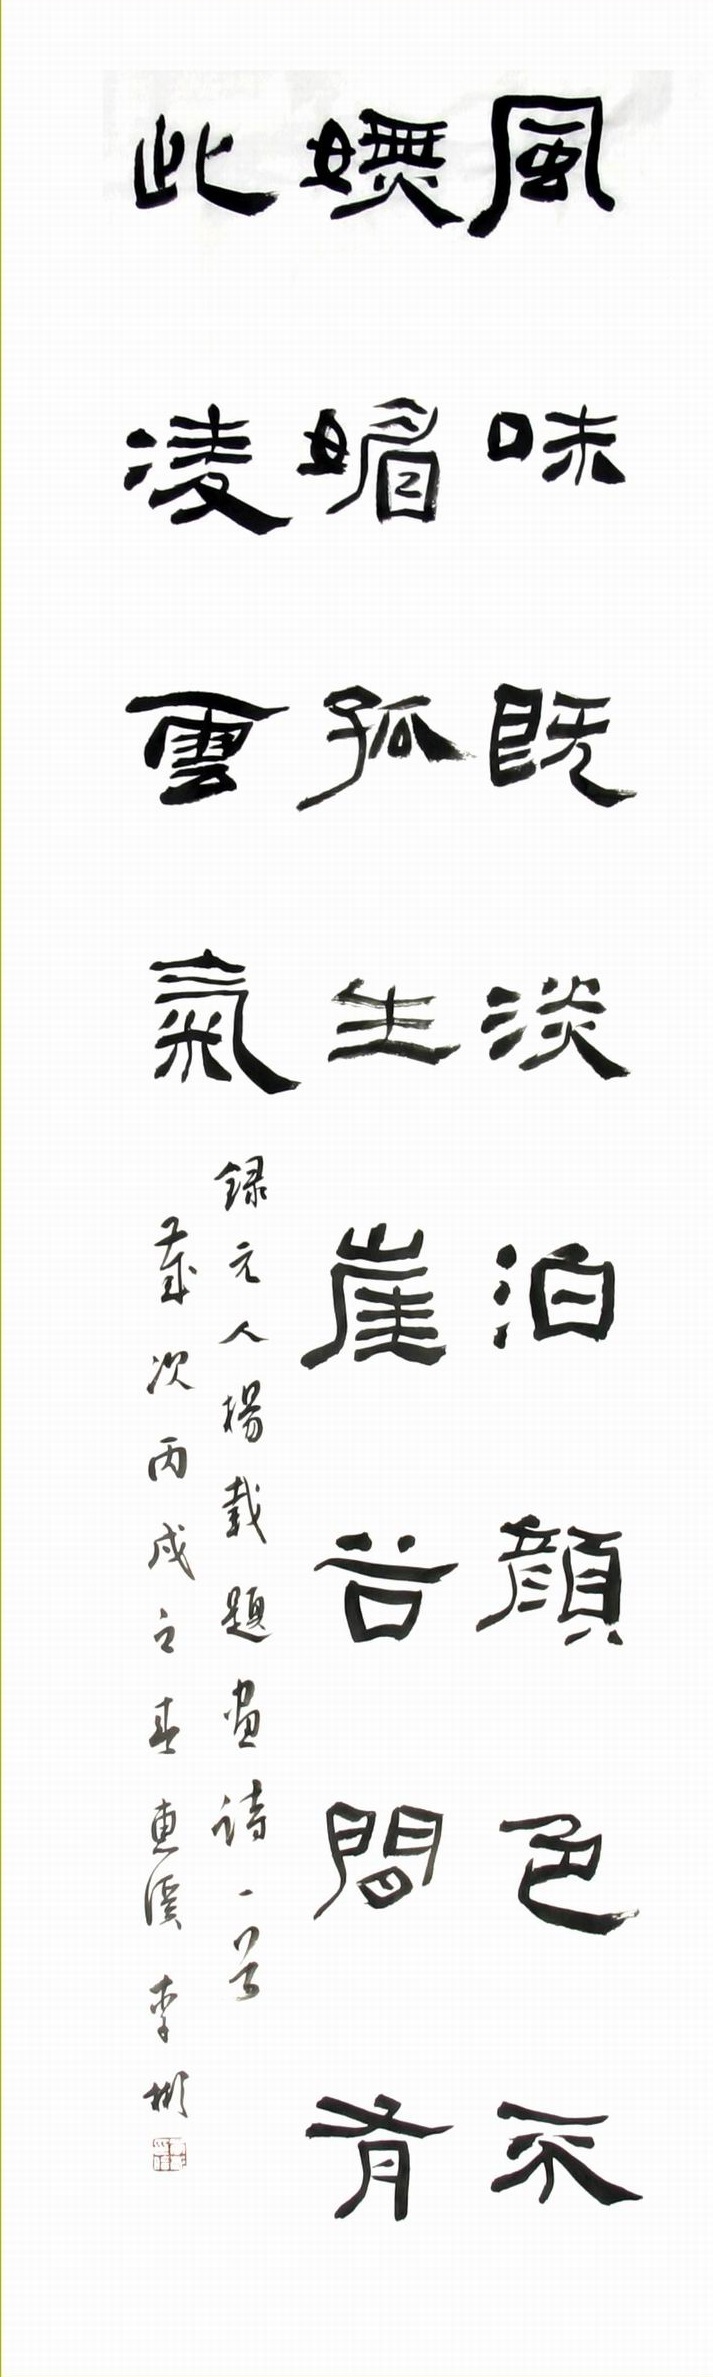 風味既淡泊顔色不
嫵媚孤生崖谷間有
此凌雲氣
録元人楊載題畫詩一首
歲次丙戌之春惠溪李彬